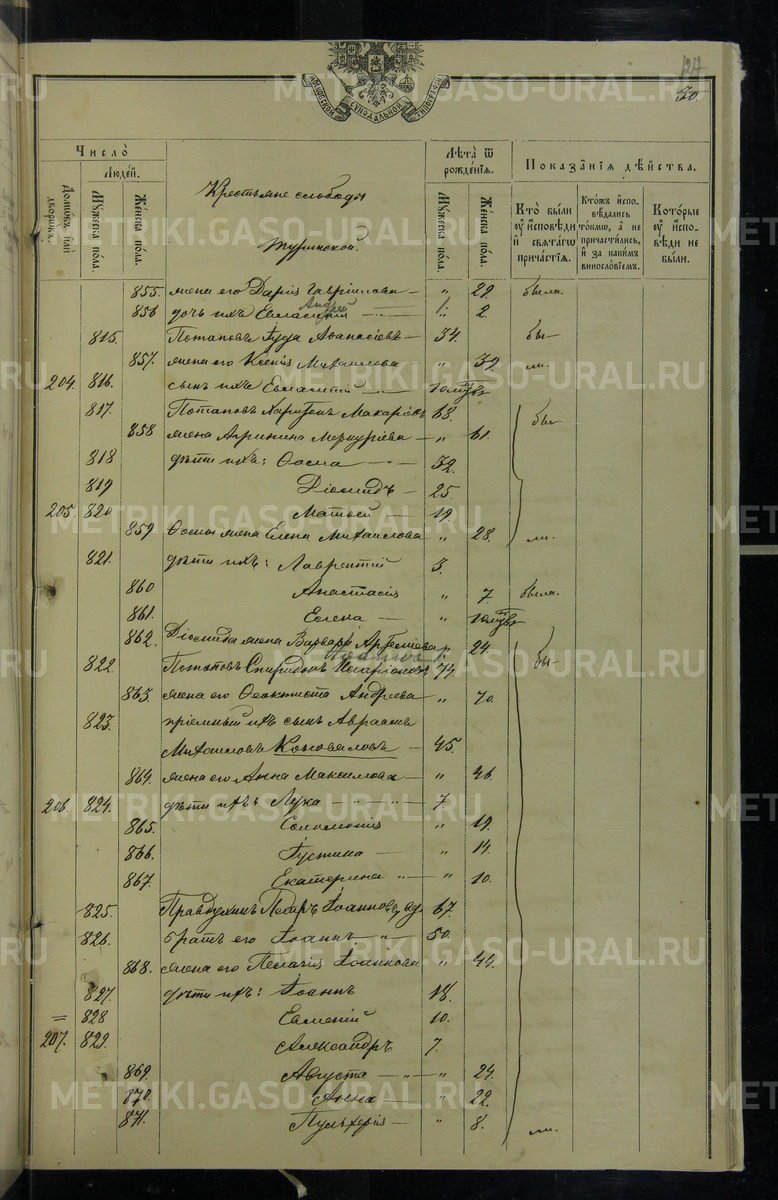 127
30.
Число̀
Людей.
Домовъ или дворовъ.
Мужеска пола.
Женска пола.
Крестьяне слободы
Туринской.
Лѣта ѿ рожденїя.
Мужеска пола.
Женска пола.
Показанїя дѣйства.
Кто были у исповѣди и святагѡ причастїя.
Ктожъ исповѣдались токмѡ, а не причастились, и за какимъ винословїемъ.
Которые у исповѣди не были.
855. жена его Дарія Гавріилова — " 29. была.
856 дочь ихъ Евласія — 2.
815. Потаповъ Іуда Аѳанасіевъ — 34. бы-
857. жена его Ксенія Михаилова " 32. ли.
204. 816. сынъ ихъ Евлампій —
817. Потаповъ Харитонъ Макаріевъ 68. бы-
858 жена Агрипина Меркуріева — " 61.
818 дѣти ихъ: Ѳома — 32.
819 Діомидъ — 25.
205. 820 Матѳей — 19.
859 Ѳомы жена Елена Михаилова " 28. ли.
821. дѣти ихъ: Лаврентій 3.
860 Анастасія " 7. была.
861. Елена — "
862. Діомида жена Варвара Артемьева " 24.
822 Потаповъ Спиридонъ Иларіоновъ 74. бы-
863. жена его Ѳеоктиста Андреева — " 70.
823. пріемный ихъ сынъ Авраамъ
Михаиловъ Коноваловъ — 45.
864. жена его Анна Максимова — " 46.
206. 824. дѣти ихъ: Лука " — " — 7
865. Соломонія " 19.
866. Іустина — " 14.
867. Екатерина " — " 10.
825. Правдухинъ Петръ Іоанновъ, вд. 67.
826. братъ его Іоаннъ — " — 50.
868. жена его Пелагія Іоаннова " 44.
827. дѣти ихъ: Іоаннъ 18.
828 Евменій 10.
207. 829. Александръ 7.
869. Августа — " — " 24.
870. Анна — " 22.
871. Пульхерія — " 8. ли.
METRIKI.GASO-URAL.RU